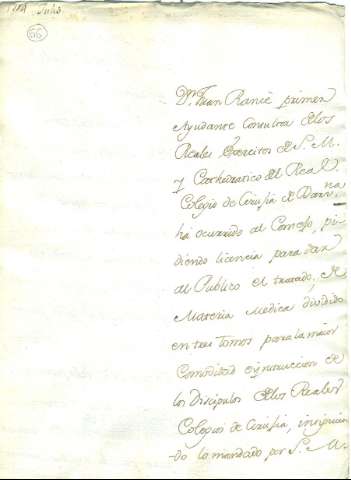 Julio
Dn. Juan Rancé primer
Ayudante Consultor de los
Reales Exercitos de S. M.
y Cathedratico del Real
Colegio de Cirugia de Barna
ha ocurrido al Consejo, pi-
diendo licencia para dar
al Publico el tratado, de
Materia Medica dividido
en tres Tomos para la maior
Comodidad e instruccion de
los Discipulos de los Reales
Colegios de Cirugia, insiguien-
do lo mandado por S. M.